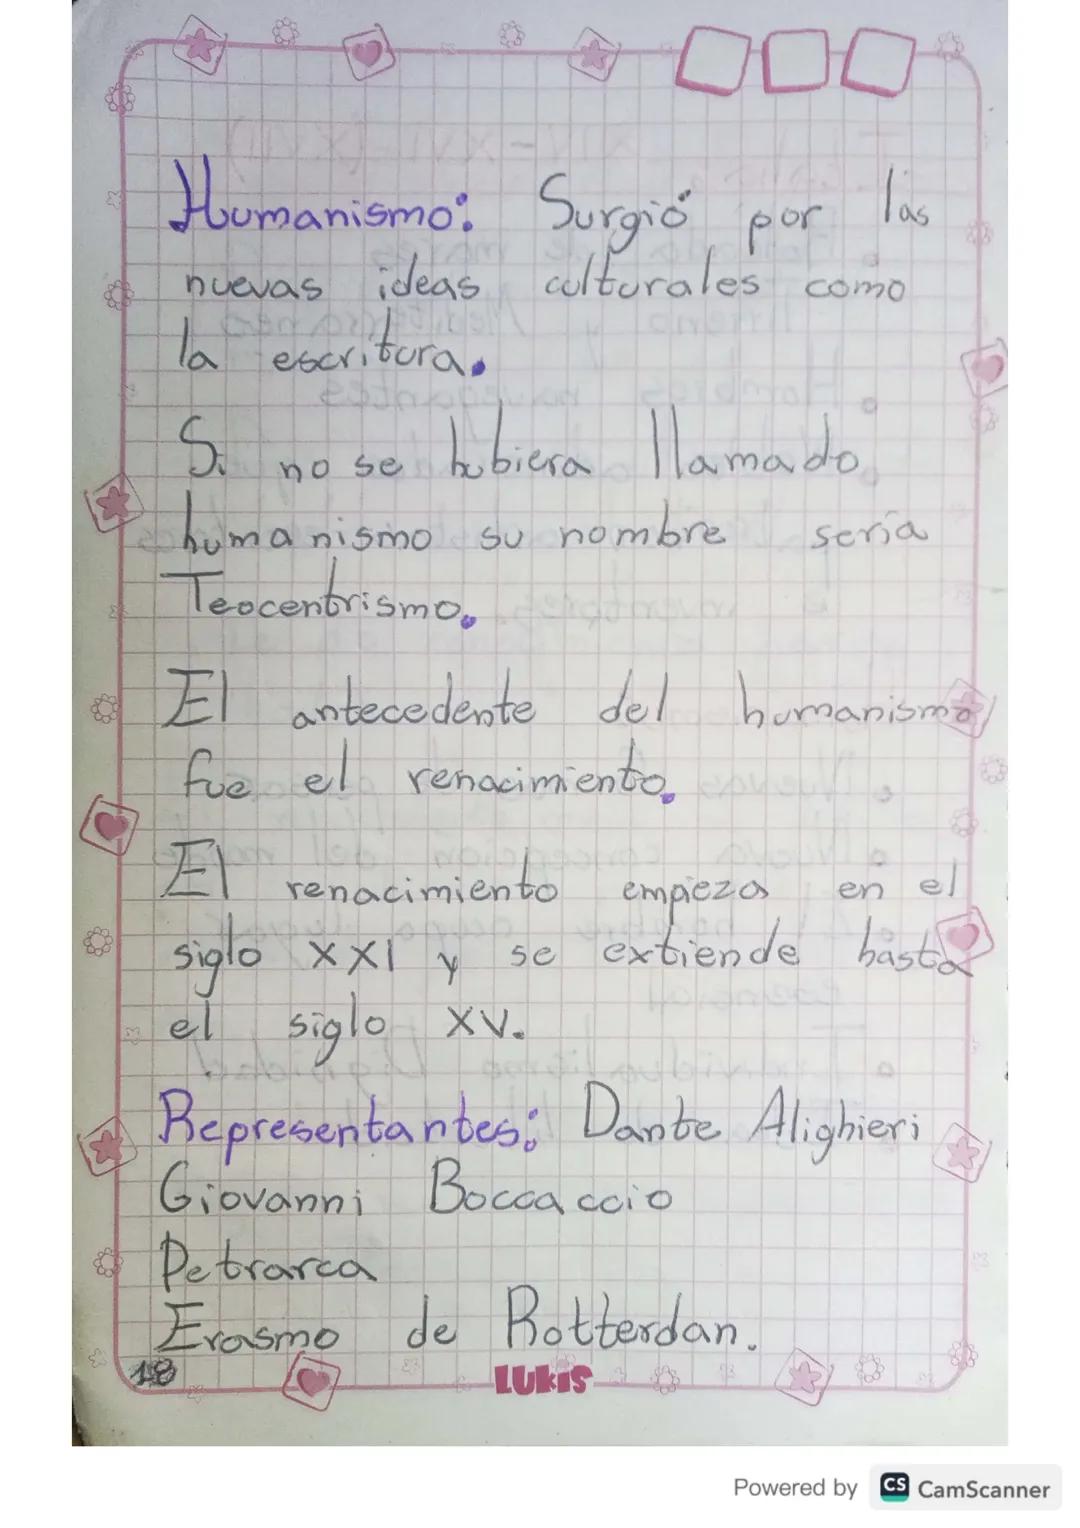 Humanismo: Surgió por las
nuevas ideas culturales como
la escritura.
Si no se hubiera llamado
humanismo su nombre sería
Teocentrismo.
El antecedente del humanismo
fue el renacimiento.
El renacimiento empieza en el
siglo XXI y se extiende hasta
el siglo XV.
Representantes: Dante Alighieri
Giovanni Boccaccio
Petrarca
Erasmo de Rotterdan.
18
LUKIS
Powered by CS CamScanner